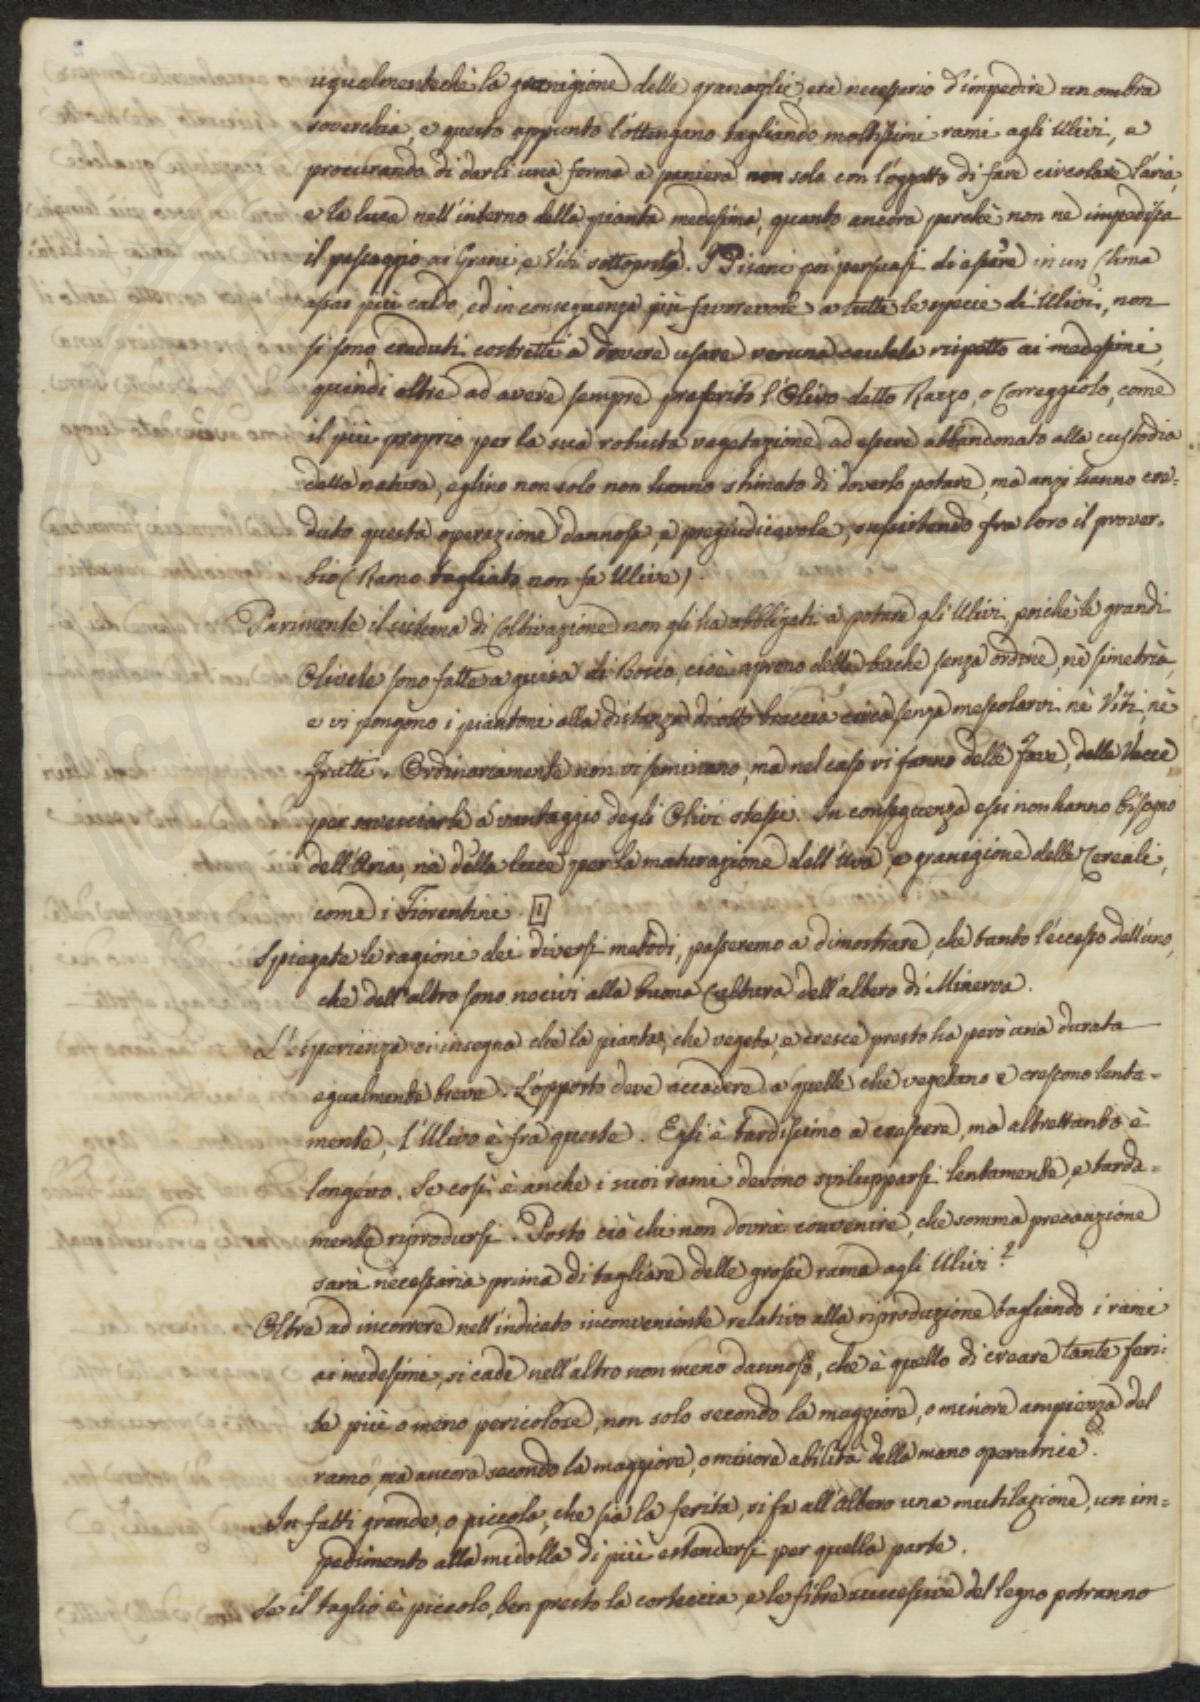 ugualmentechè la granigione delle granaglie, era necessario d'impedire un ombra
soverchia, e questo appunto l'ottengano tagliando moltissimi rami agli Ulivi, e
procurando di darli una forma a paniera non solo con l'oggetto di fare circolare l'aria,
e la luce nell'interno della pianta medesima, quanto ancora perchè non ne impedisca
il passaggio ai Grani, e Viti sottoposte. I Pisani poi persuasi di essere in un Clima
assai più caldo, ed in conseguenza più favorevole a tutte le specie di Ulivi, non
si sono creduti costretti a dovere usare veruna cautela rispetto ai medesimi,
quindi oltre ad avere sempre preferito l'Olivo detto Razzo, o Correggiolo, come
il più proprio per la sua robusta vegetazione ad essere abbandonato alla custodia
della natura, eglino non solo non hanno stimato di doverlo potare, ma anzi hanno cre-
duto questa operazione dannosa, e pregiudicevole, sussistendo fra loro il prover-
bio (Ramo tagliato non fa Ulive)
Parimente il sistema di Coltivazione non gli ha obbligati a potare gli Ulivi, poichè le grandi
Olivete sono fatte a guisa di Bosco, cioè aprono delle buche senza ordine, nè simetria,
e vi pongono i piantoni alla distanza di otto braccia circa senza mescolarvi nè Viti, nè
Frutti. Ordinariamente non vi seminano, ma nel caso vi fanno delle Fave, delle Vecce
per rovesciarle a vantaggio degli Olivi stessi. In conseguenza essi non hanno bisogno
dell'Aria, nè della luce per la maturazione dell'Uva, e granigione delle Cereali,
come i Fiorentini. [1]
Spiegate le ragioni dei diversi metodi, passeremo a dimostrare, che tanto l'eccesso dell'uno,
che dell'altro sono nocivi alla buona Cultura dell'albero di Minerva.
L'esperienza ci insegna che la pianta, che vegeta, e cresce presto ha però una durata
egualmente breve. L'opposto deve accadere a quelle che vegetano e crescono lenta-
mente, l'Ulivo è fra queste. Egli è tardissimo a crescere, ma altrettanto è
longevo. Se così è anche i suoi rami devono svilupparsi lentamente, e tarda-
mente riprodursi. Posto ciò chi non dovrà convenire, che somma precauzione
sarà necessaria prima di tagliare delle grosse rama agli Ulivi?
Oltre ad incorrere nell'indicato inconveniente relativo alla riproduzione tagliando i rami
ai medesimi, si cade nell'altro non meno dannoso, che è quello di creare tante feri-
te più o meno pericolose, non solo secondo la maggiore, o minore ampiezza del
ramo, ma ancora secondo la maggiore, o minore abilità della mano operatrice.
In fatti grande, o piccola, che sia la ferita, si fa all'Albero una mutilazione, un im-
pedimento alla midolla di più estendersi per quella parte.
Se il taglio è piccolo, ben presto la corteccia, e le fibre successive del legno potranno